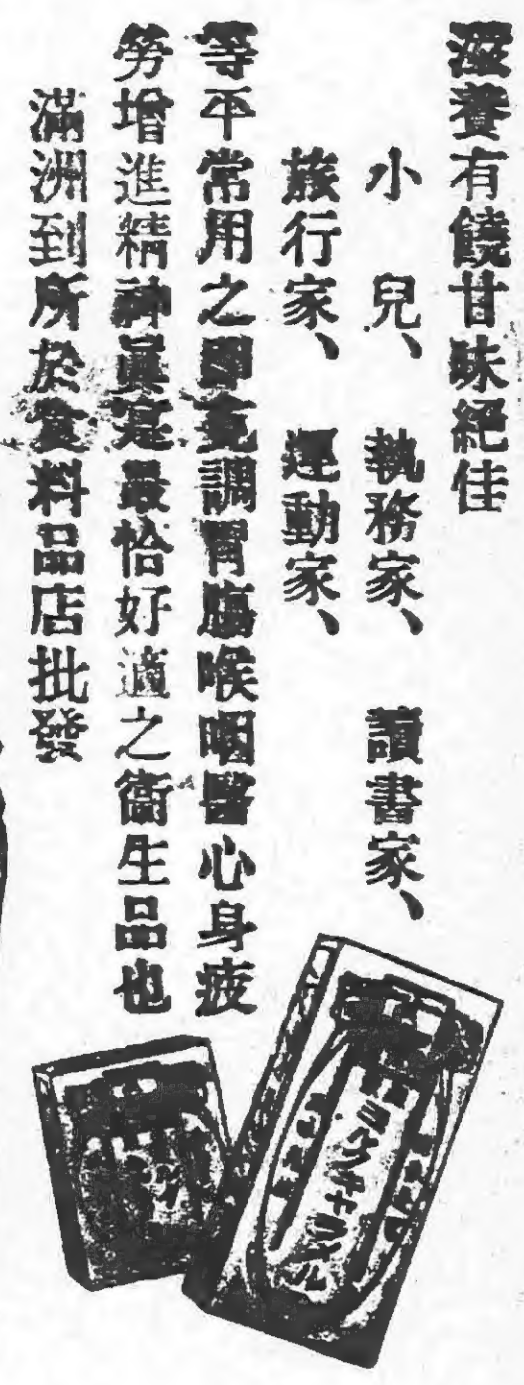 滋養有饒甘味絕佳
小兒、執務家、讀書家、
旅行家、運動家、
等平常用之即克調胃腸喉咽醫心身疲
勞增進精神眞是最恰好適之衞生品也
滿洲到所於食料品店批發
ミルクキャラメル